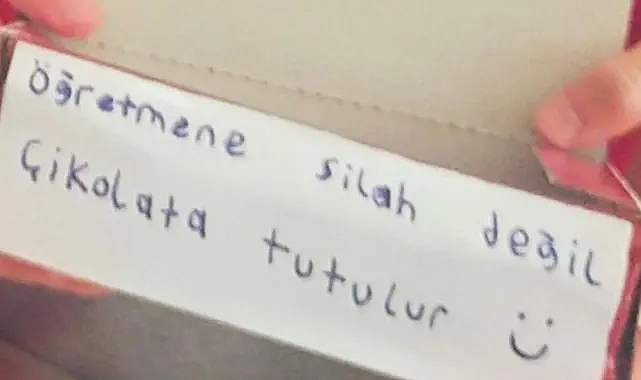 Öğretmene silah değil
Çikolata tutulur :)